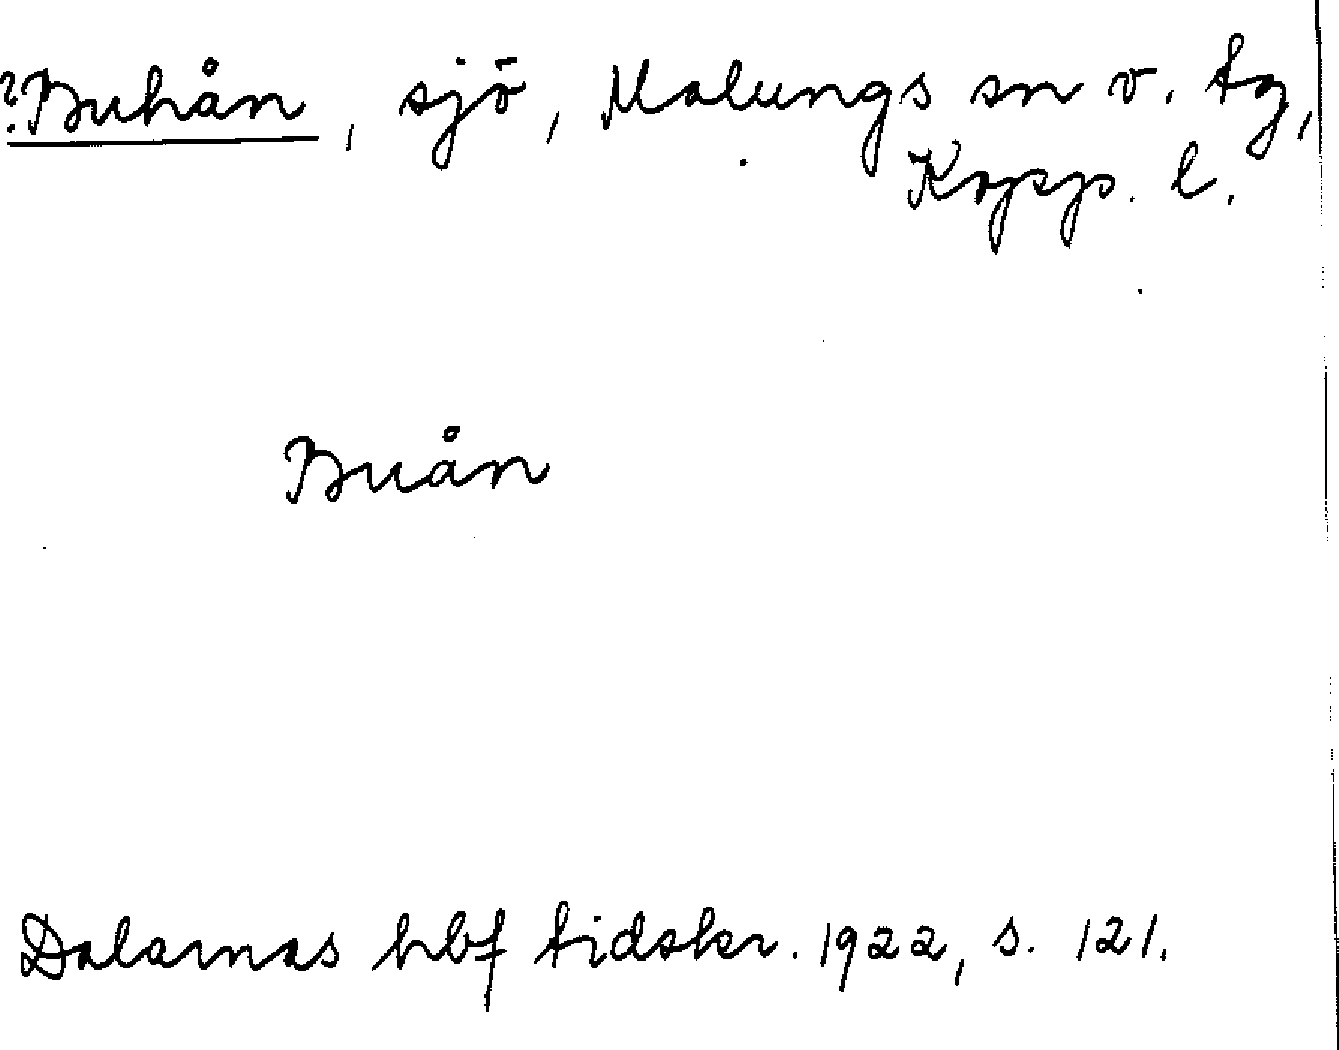 ?Buhån, sjö, Malungs sn v. tg,
Kopp. l.
Buån
Dalarnas hbf tidskr. 1922, s. 121.